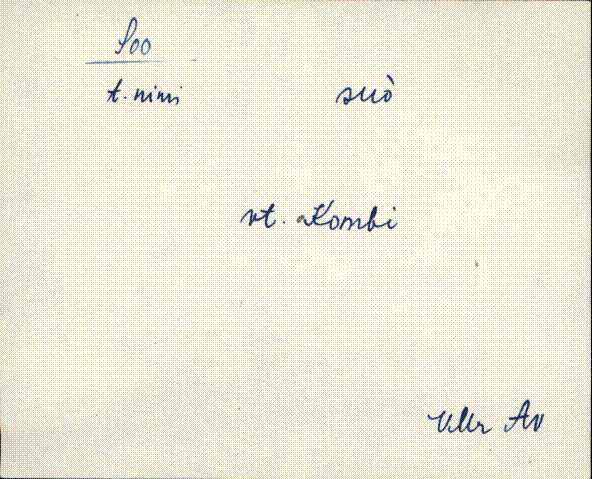 Soo
t. nimi suò
vt. Kombi
VMr Av